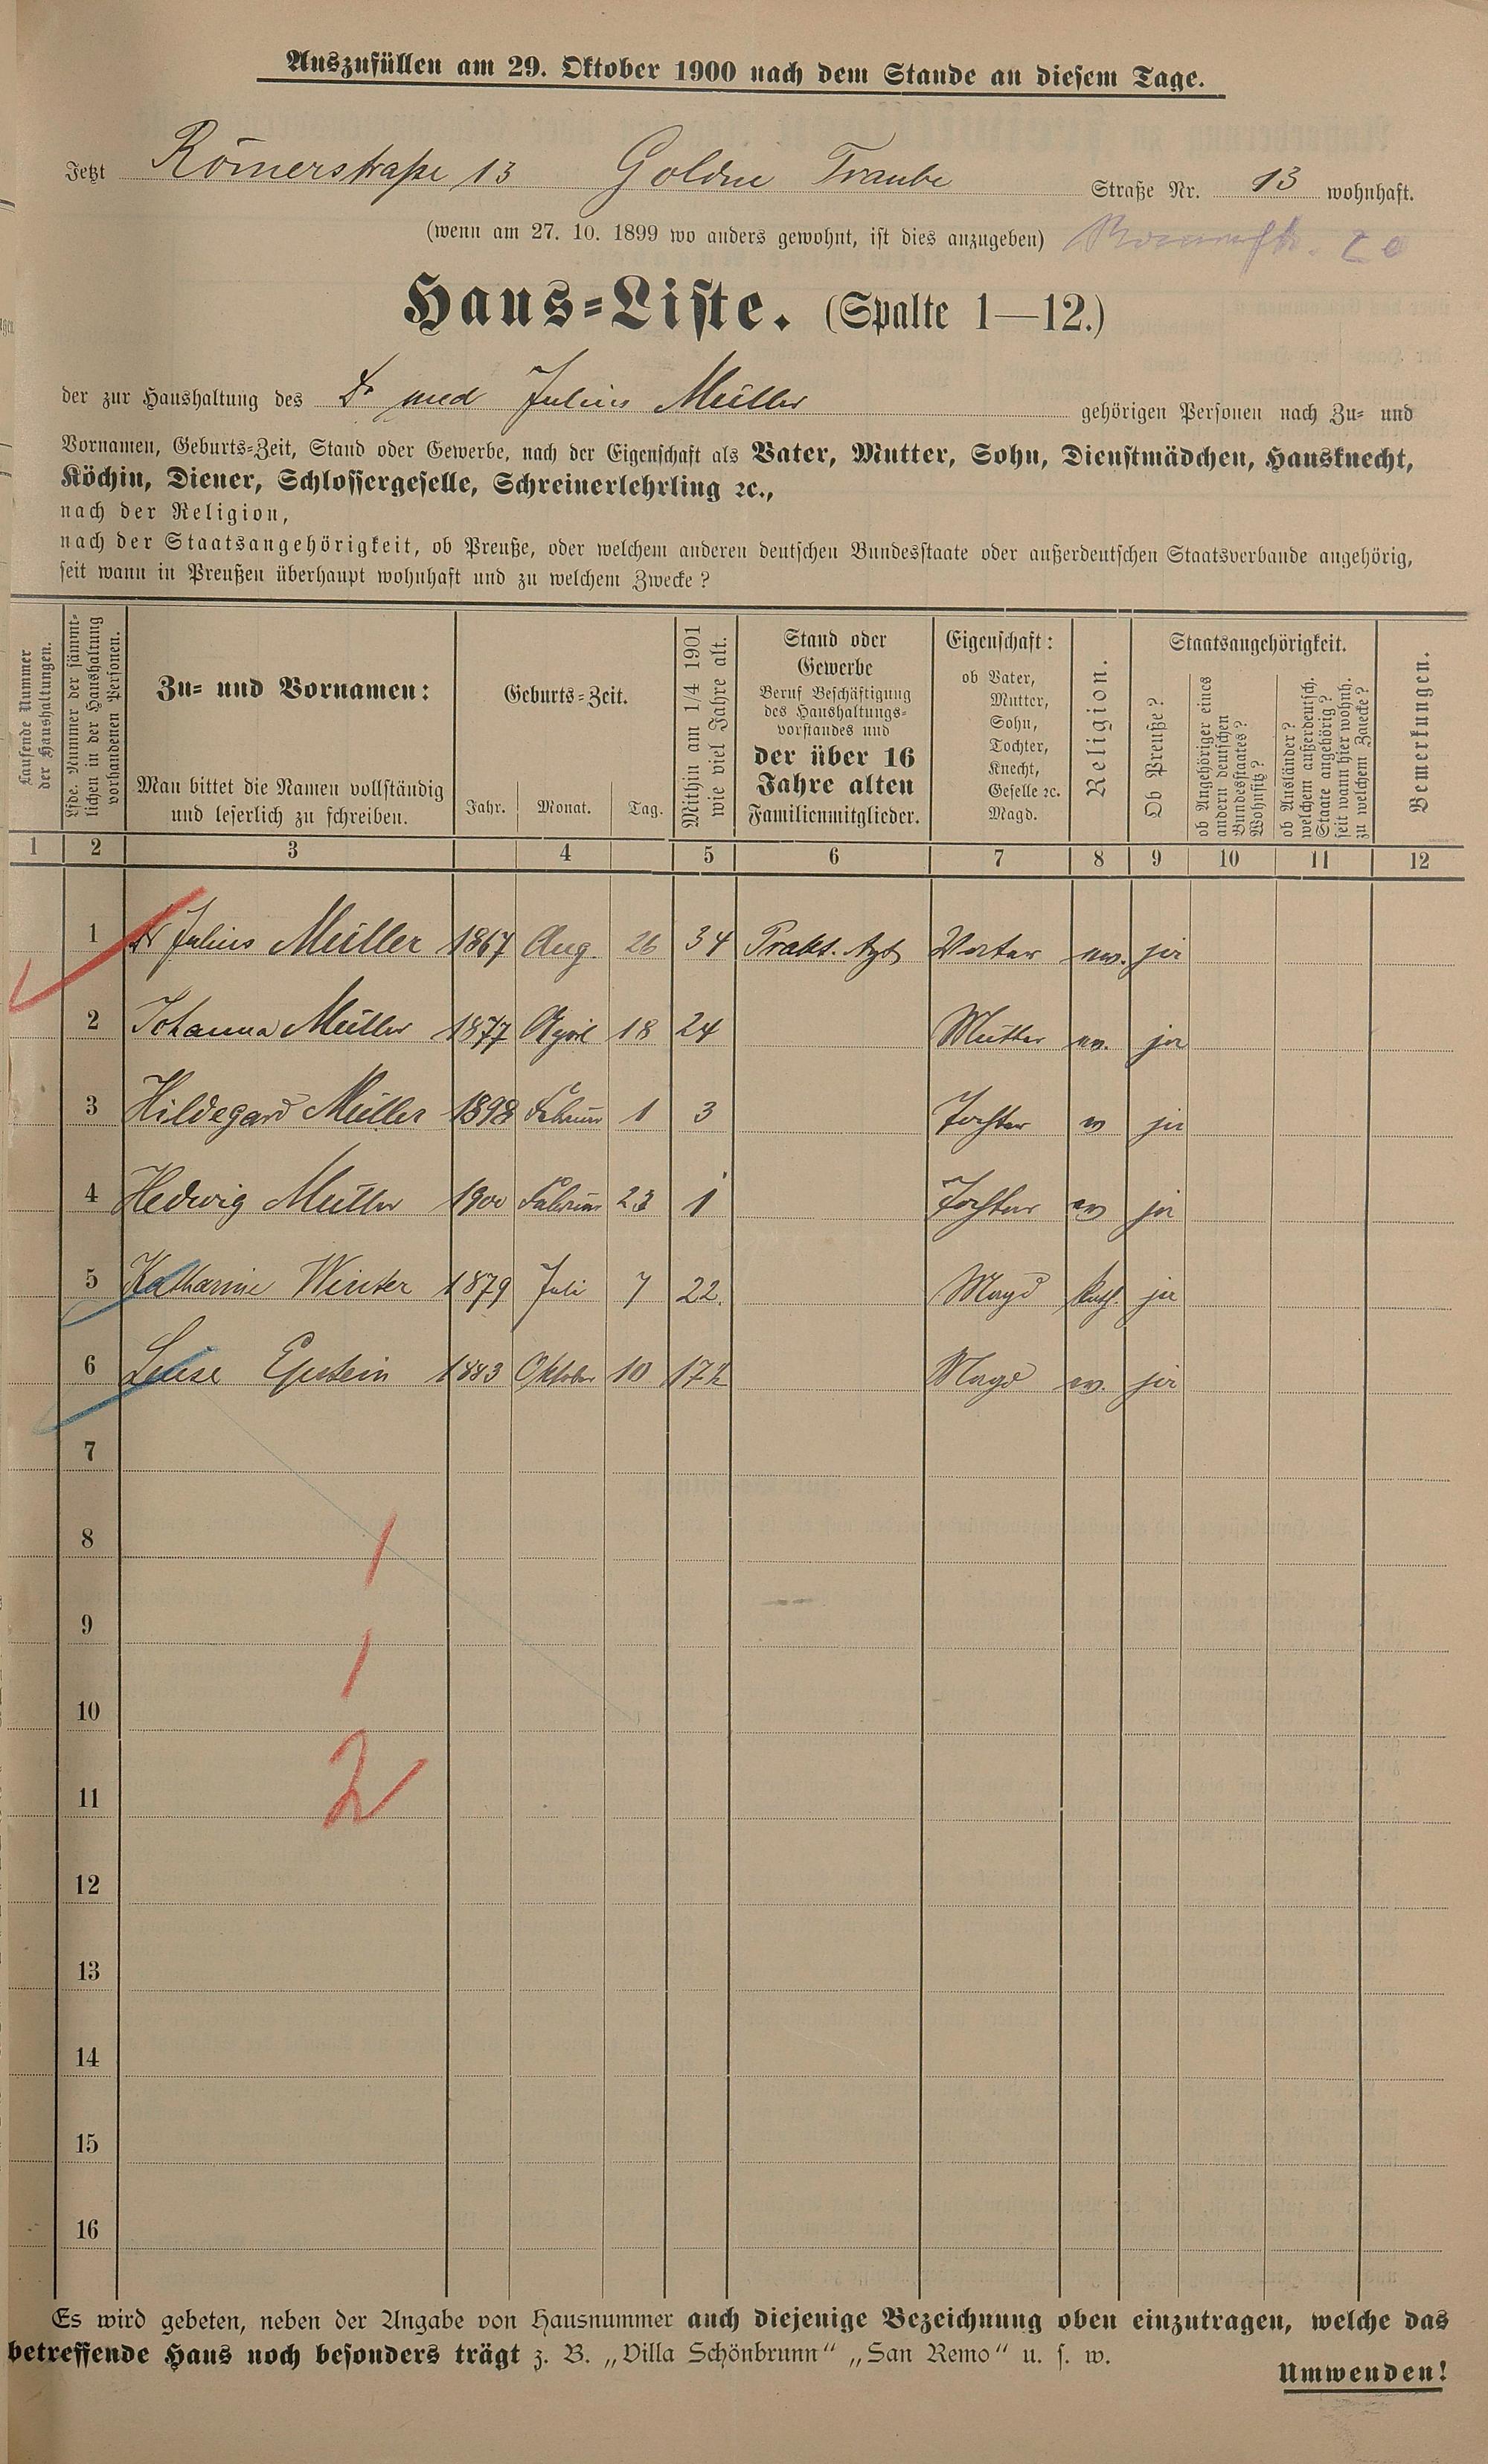 Auszufüllen am 29. Oktober 1900 nach dem Stande an diesem Tage.
Jetzt Römerstraße 13 Goldne Traube Straße Nr. 13 wohnhaft.
(wenn am 27. 10. 1899 wo anders gewohnt, ist dies anzugeben)
Haus-Liste. (Spalte 1—12.)
der zur Haushaltung des Dr med Julius Müller gehörigen Personen nach Zu- und
Vornamen, Geburts-Zeit, Stand oder Gewerbe, nach der Eigenschaft als Vater, Mutter, Sohn, Dienstmädchen, Hausknecht,
Köchin, Diener, Schlossergeselle, Schreinerlehrling ꝛc.,
nach der Religion,
nach der Staatsangehörigkeit, ob Preuße, oder welchem anderen deutschen Bundesstaate oder außerdeutschen Staatsverbande angehörig,
seit wann in Preußen überhaupt wohnhaft und zu welchem Zwecke?
Laufende Nummer
der Haushaltungen.
Lfde. Nummer der sämmt-
lichen in der Haushaltung
vorhandenen Personen.
Zu- und Vornamen:
Man bittet die Namen vollständig
und leserlich zu schreiben.
Geburts-Zeit.
Jahr. Monat. Tag.
Mithin am 1/4 1901
wie viel Jahre alt.
Stand oder
Gewerbe
Beruf Beschäftigung
des Haushaltungs-
vorstandes und
der über 16
Jahre alten
Familienmitglieder.
Eigenschaft:
ob Vater,
Mutter,
Sohn,
Tochter,
Knecht,
Geselle ꝛc.
Magd.
Religion.
Staatsangehörigkeit.
Ob Preuße?
ob Angehöriger eines
andern deutschen
Bundesstaates?
Wohnsitz?
ob Ausländer?
welchem außerdeutsch.
Staate angehörig?
seit wann hier wohnh.
zu welchem Zwecke?
Bemerkungen.
1 2 3 4 5 6 7 8 9 10 11 12
1 Dr Julius Müller 1867 Aug. 26 34 Prakt. Arzt Vater ev. ja
2 Johanna Müller 1877 April 18 24 Mutter ev. ja
3 Hildegard Müller 1898 Februar 1 3 Tochter ev ja
4 Hedwig Müller 1900 Februar 23 1 Tochter ev ja
5 Katharine Winter 1879 Juli 7 22. Magd kath. ja
6 Luise Epstein 1883 Oktober 10 17½ Magd ev. ja
7
8
1
9
1
10
11
2
12
13
14
15
16
Es wird gebeten, neben der Angabe von Hausnummer auch diejenige Bezeichnung oben einzutragen, welche das
betreffende Haus noch besonders trägt z. B. „Villa Schönbrunn“ „San Remo“ u. s. w.
Umwenden!